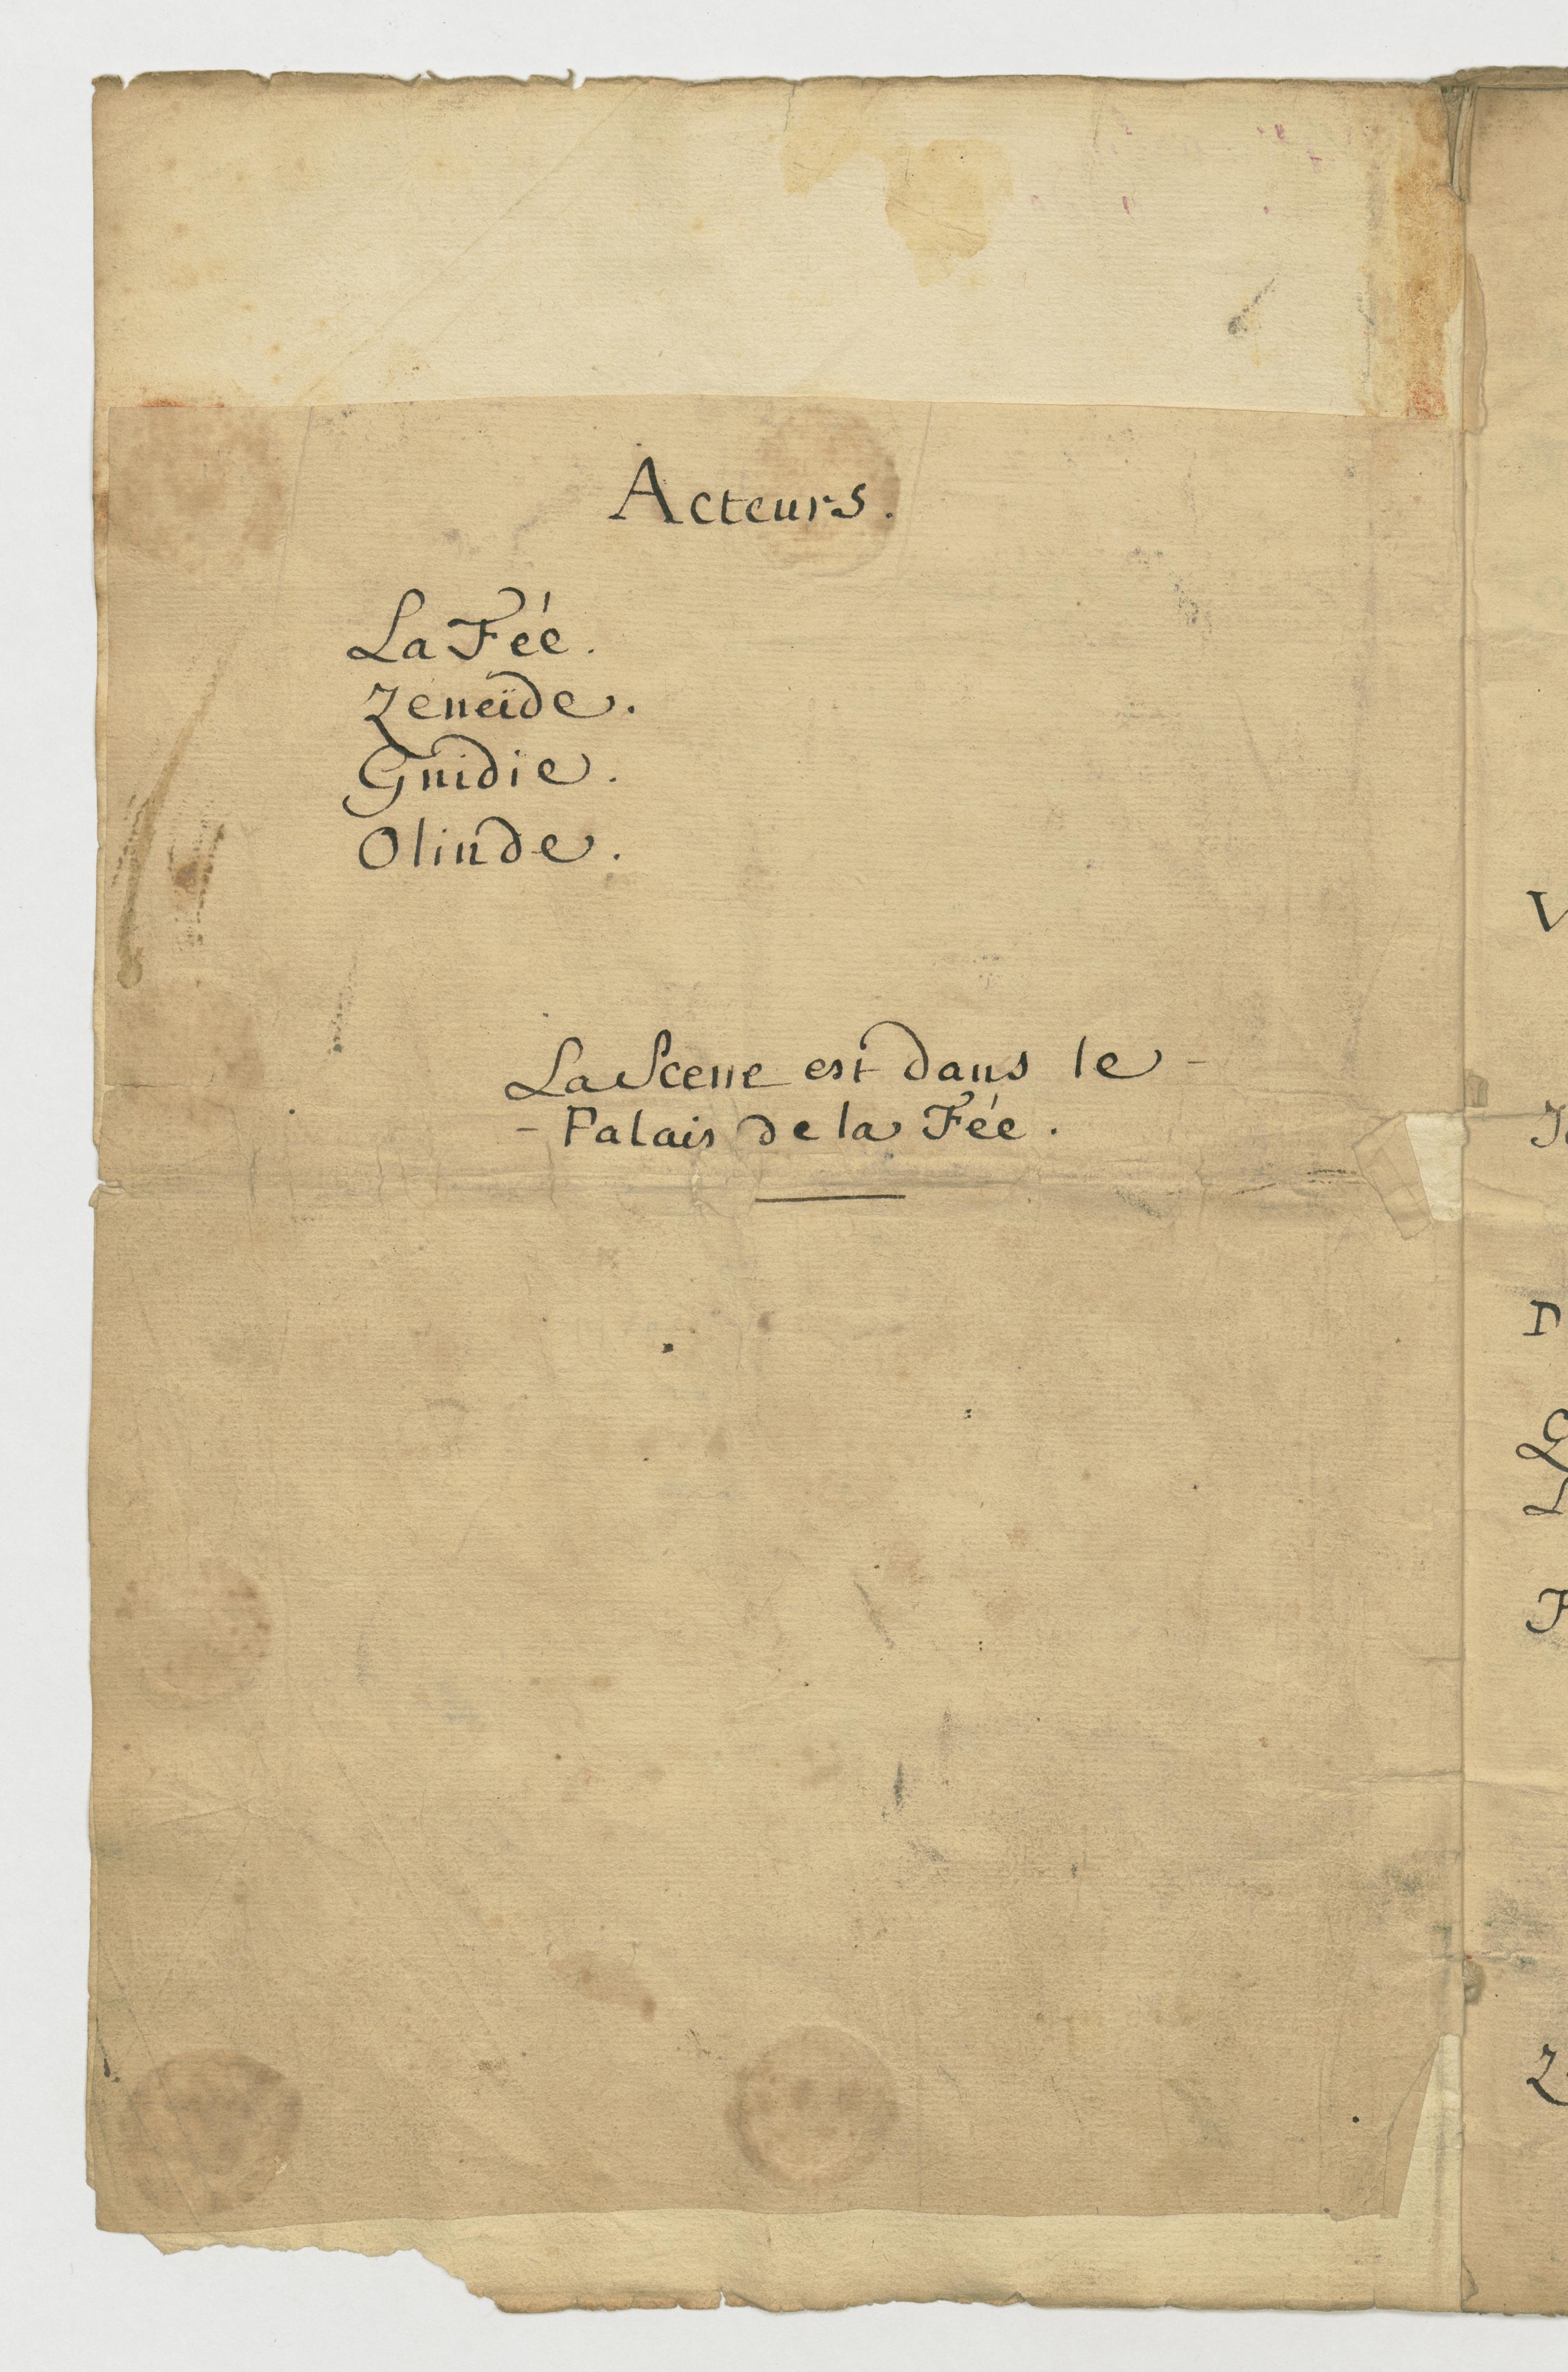 Acteurs.
La Fée.
Zeneïde.
Gnidie.
Olinde.
La Scene est dans le -
- Palais de la Fée.